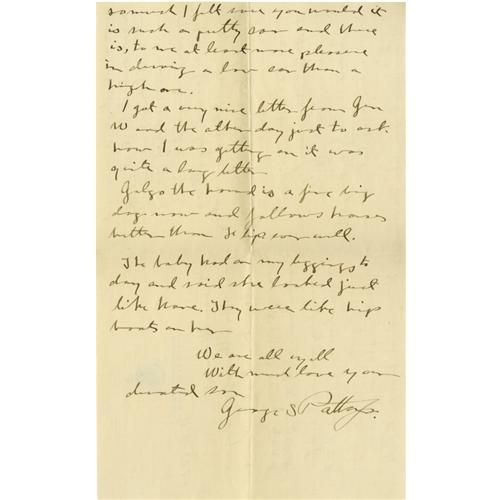 so much I felt sure you would it
is such a pretty car and there
is, to me at least more pleasure
in driving a low car than a
high one.
I got a very nice letter from Gen
W and the other day just to ask
how I was getting on it was
quite a long letter
the hound is a fine big
dog now and follows horses
better than ever will.
The baby had on my leggings to
day and said she looked just
like . They were like hip
boots on her
We are all well
With much love your
devoted son
George S Patton Jr.